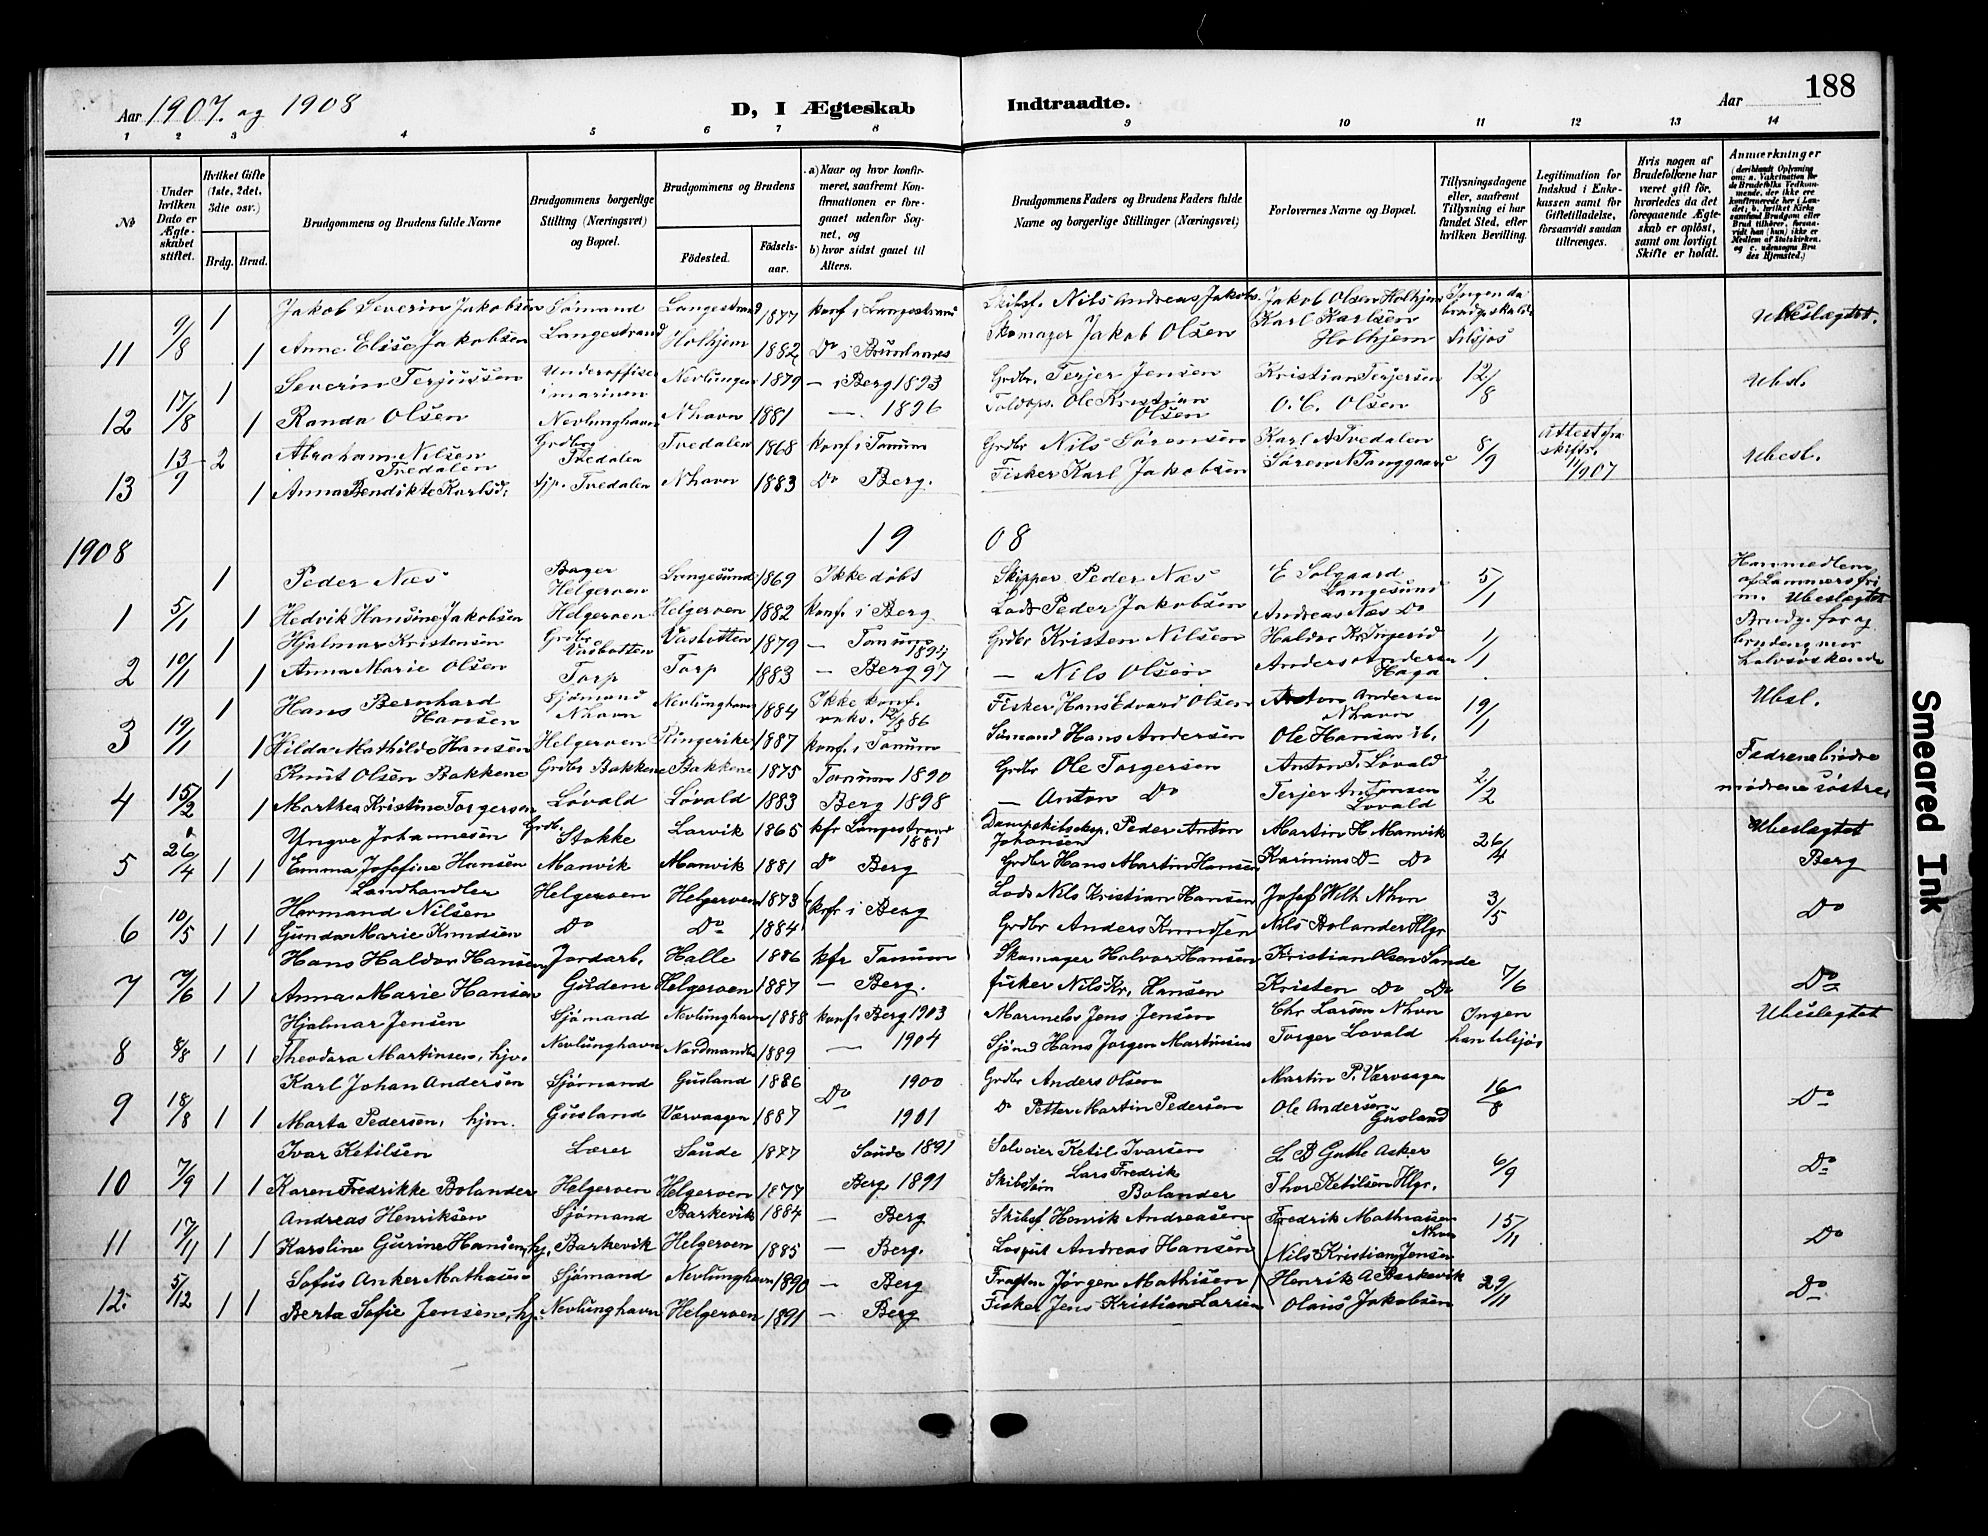 188
Aar 1907. og 1908
D, I Ægteskab Indtraadte.
Aar
1 2 3 4 5 6 7 8 9 10 11 12 13 14
№
Under hvilken Dato er Ægteskabet stiftet.
Hvilket Gifte (1ste, 2det, 3die osv.)
Brdg. Brud.
Brudgommens og Brudens fulde Navne
Brudgommens borgerlige Stilling (Næringsvei) og Bopæl.
Brudgommens og Brudens
Fødested.
Fødselsaar.
a) Naar og hvor konfirmeret, saafremt Konfirmationen er foregaaet udenfor Sognet, og
b) hvor sidst gaaet til Alters.
Brudgommens Faders og Brudens Faders fulde Navne og borgerlige Stillinger (Næringsvei)
Forlovernes Navne og Bopæl.
Tillysningsdagene eller, saafremt Tillysning ei har fundet Sted, efter hvilken Bevilling.
Legitimation for Indskud i Enkekassen samt for Giftetilladelse, forsaavidt saadan tiltrænges.
Hvis nogen af Brudefolkene har været gift før, hvorledes da det foregaaende Ægteskab er opløst, samt om lovligt Skifte er holdt.
Anmærkninger
(deriblandt Oplysning om: a. Vakcination for de Brudefolks Vedkommende, der ikke ere konfirmerede her i Landet; b. hvilket Kirkesamfund Brudgom eller Brud tilhører, forsaavidt han (hun) ikke er Medlem af Statskirken, og c. udensogns Brudes Hjemsted.)
1 Jakob Severin Jakobsen Sømand Langestrand 1877 konf. i Langestrand Skibsf. Nils Andreas Jakobs. Jakob Olsen Holhjem Ingen da Ubeslægtet.
11 9/8 1 Anne Elise Jakobsen Langestrand Holhjem 1882 Do i Brunlanes Skomager Jakob Olsen Karl Karlsen Holhjem
1 Severin Terjussen Underoffiser i marinen Nevlungen 1879 — i Berg 1893 Grdbr. Terjer Jensen Kristian Terjersen 12/8 Ubsl.
12 17/8 1 Randa Olsen Nevlunghavn Nhavn 1881 — 1896 Toldop. Ole Kristian Olsen O. C. Olsen
13/9 2 Abraham Nilsen Tvedalen Grdbr. Tvedalen Tvedalen 1868 konf i Tanum Grdbr Nils Sørensen Karl A Tvedalen 8/9 Attest fra skifts. 11/9 07 Ubesl.
13 1 Anna Bendikte Karlsd. Tvedalen Nhavn 1883 Do Berg. Fisker Karl Jakobsen Søren N Tanggaard
1908 19 08
1 Peder Næs Bager Helgeroen Langesund 1869 Ikke døbt Skipper Peder Næs E Solgaard Langesund 5/1 Han medlem af Lammers fri m. Ubeslægtet
1 5/1 1 Hedvik Hansine Jakobsen Helgeroen Helgeroen 1882 konf. i Berg Lods Peder Jakobsen Andreas Næs Do
1 Hjalmar Kristensen Grdbr Vasbotten Vasbotten 1879 — Tanum 1894 Grdbr Kristen Nilsen Haldor Kr. 1/1 Brudg. far og brudens mor halvsøskende
2 10/1 1 Anna Marie Olsen Torp Torp 1883 — Berg 97 — Nils Olsen Anders Andersen Haga
1 Hans Bernhard Hansen Sjømand Nhavn Nevlunghavn 1884 Ikke konf. vaks. 12/8 86 Fisker Hans Edvard Olsen Anton Andersen Nhavn 19/1 Ubsl.
3 19/1 1 Hilda Mathilde Hansen Helgeroen Ringerike 1887 konf. i Tanum Sømand Hans Andersen Ole Hansen ib.
1 Knut Olsen Bakkene Grdbr Bakkene Bakkene 1875 Tanum 1890 Grdbr Ole Torgersen Anton T. Løvald 2/2 Fedrene brødre mødrene søstre
4 15/2 1 Marthea Kristine Torgersen Løvald Løvald 1883 Berg 1898 — Anton Do Terjer Antonsen Løvald
Yngve Johannesen Grdbr. Stokke Larvik 1865 kfr Langestrand 1881 Dampskibseksp. Peder Anton Johansen Martin H. Manvik 26/4 Ubeslægtet
5 26/4 1 1 Emma Josefine Hansen Manvik Manvik 1881 Do Berg Grdbr Hans Martin Hansen Karinius Do Do Berg
Landhandler Hermand Nilsen Helgeroen Helgeroen 1873 kfr i Berg Lods Nils Kristian Hansen Josef Wilh Nhvn 3/5 Do
6 10/5 1 1 Gunda Marie Knudsen Do Do 1884 Grdbr Anders Knudsen Nils Bolander Hlgr
Hans Haldor Hansen Jordarb. Halle 1886 kfr Tanum Skomager Halvor Hansen Kristian Olsen Sande 7/6 Do
7 7/6 1 1 Anna Marie Hansen Gurdene Helgeroen 1887 — Berg. fisker Nils Kr. Hansen Kristen Do Do
Hjalmar Jensen Sjømand Nevlunghavn 1888 konf i Berg 1903 Jens Jensen Chr Larsen Nhvn Ingen Ubeslægtet
8 8/8 1 1 Theodora Martinsen, hjv. Nevlunghavn 1889 — 1904 Sjømd Hans Jørgen Martinsen Torger Løvald
Karl Johan Andersen Sjømand Gusland 1886 Do 1900 Grdbr Anders Olsen Martin P. Værvaagen 16/8 Do
9 18/8 1 1 Marta Pedersen, hjm. Gusland Værvaagen 1887 1901 Do Petter Martin Pedersen Ole Andersen Gusland
Ivar Ketilsen Lærer Saude 1877 Saude 1891 Selveier Ketil Ivarsen L B Guthe Asker 6/9 Do
10 7/9 1 1 Karen Fredrikke Bolander Helgeroen Helgeroen 1877 Berg 1891 Lars Fredrik Bolander Thor Ketilsen Hlgr.
Andreas Henriksen Sjømand Barkevik 1884 — Berg Skibsf. Henrik Andreasen Fredrik Mathiassen Nhvn 15/11 Do
11 17/11 1 1 Karoline Gurine Hansen, hj. Barkevik Helgeroen 1885 — Berg. Andreas Hansen Nils Kristian Jensen
Sofus Anker Mathisen Sjømand Nevlunghavn 1890 — Berg Jørgen Mathisen Henrik A Barkevik 29/11 Do
12. 5/12 1 1 Berta Sofie Jensen, hj. Nevlunghavn Helgeroen 1891 — Berg Fisker Jens Kristian Larsen Olaus Jakobsen
Smeared Ink